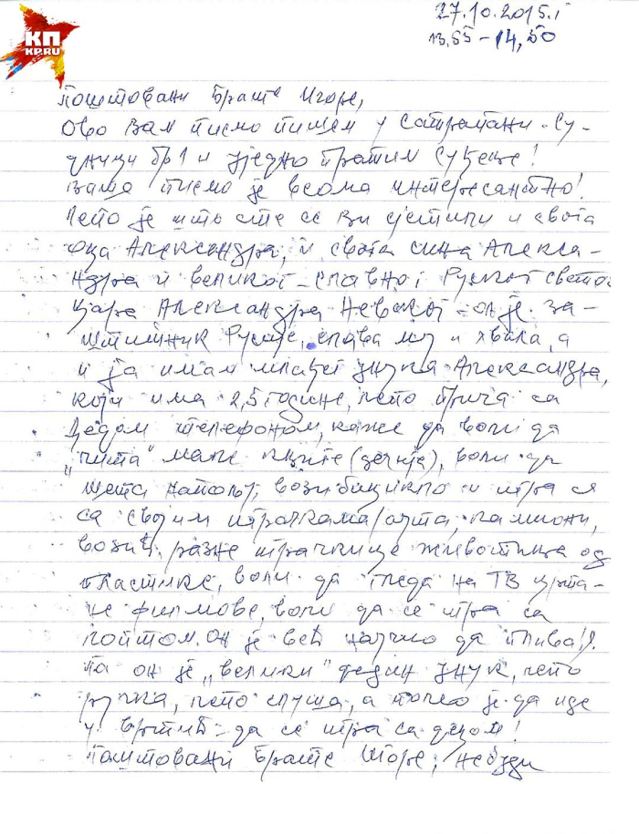 КП
KP.RU
27.10.2015.г
13,55-14,50
Поштовани Брате Игоре,
Ово Вам писмо пишем у сатрапани-Су-
дници бр1 и уједно пратим суђење!
Ваше писмо је веома интересантно!
Лепо је што сте се Ви сјетили и свога
оца Александра, и свога сина Алекса-
ндра и великог-славног Руског светог
цара Александра Невског-он је за-
штитник Русије, слава му и хвала, а
и ја имам млађег унука Александра,
који има 2,5 године, лепо прича са
Дедом телефоном, каже да воли да
"чита" мале књиге (дечије), воли да
шета напољу, вози бицикло и игра се
са својим играчкама/аута, камиони,
возић, разне играчкице животиња од
пластике, воли да гледа на ТВ црта-
не филмове, воли да се игра са
лоптом. Он је већ научио да плива!
Па он је "велики" дедин унук, лепо
ручка, лепо слуша, а почео је да иде
у вртић-да се игра са децом!
Поштовани Брате Игоре,